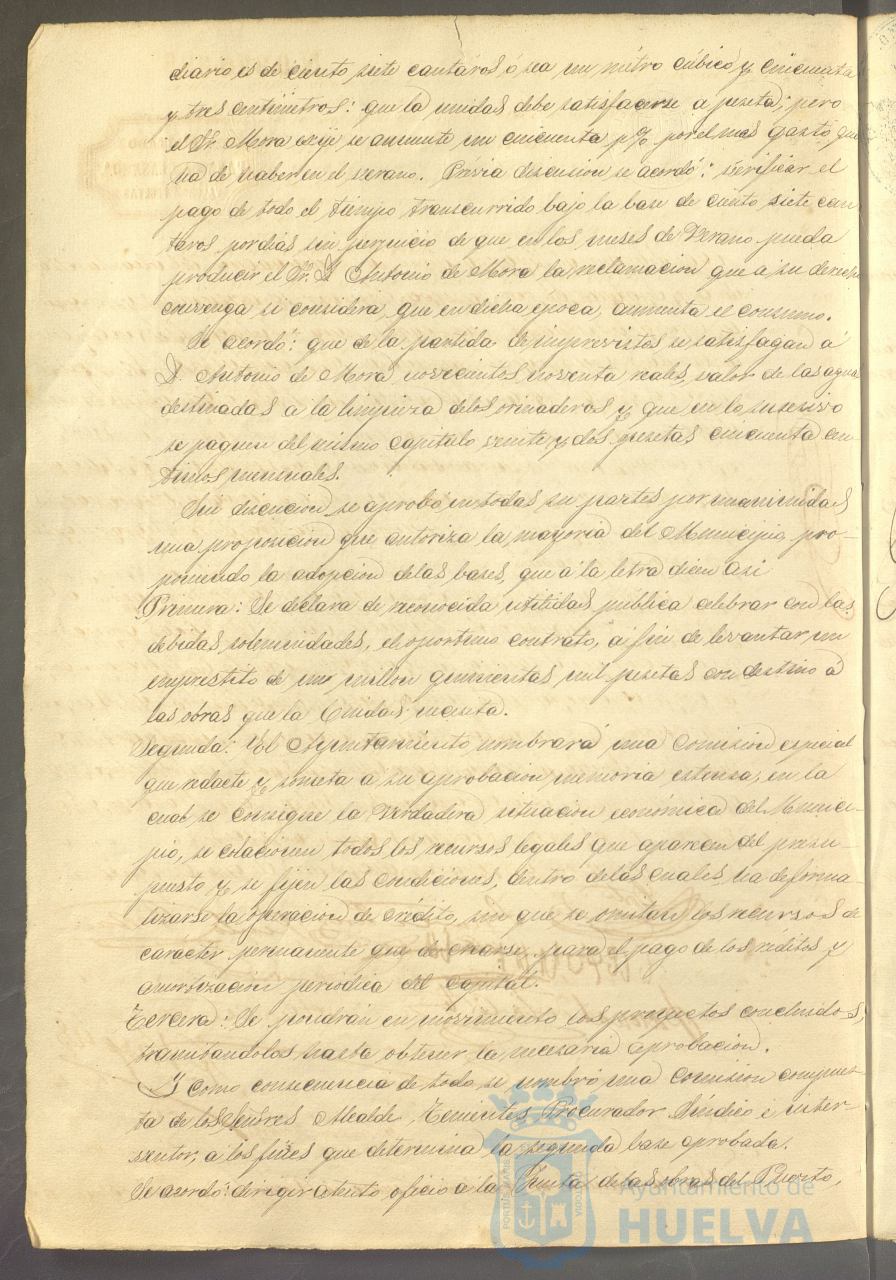 diario es de ciento siete cantaros, ó sea un métro cúbico y cincuenta
y tres centímetros: que la unidad debe satisfacerse a peseta; pero
el Sr. Mora exije se aumente un cincuenta p% por el mas gasto que
ha de haber en el verano. Prévia discusion se acordó: verificar el
pago de todo el tiempo transcurrido bajo la base de ciento siete can-
taros por dias sin perjuicio de que en los meses de Verano pueda
producir el Sr. D. Antonio de Mora la reclamacion que á su derecho
convenga si considera que en dicha época aumenta el consumo.
Se acordó: que de la partida de imprevistos se satisfagan á
D. Antonio de Mora novecientos noventa reales, valor de las aguas
destinadas a la limpieza de los orinaderos y que en lo sucesivo
se paguen del mismo capitulo veinte y dos pesetas cincuenta cen-
timos mensuales.
Sin discucion se aprobó en todas su partes por unanimidad
una proposicion que autoriza la mayoria del Municipio, pro-
poniendo la adopcion de las bases, que á la letra dicen asi
Primera: Se declara de reconocida utilidad pública celebrar con las
debidas solemnidades, el oportuno contrato, á fin de levantar un
emprestito de un millon quinientas mil pesetas con destino á
las obras que la Ciudad necesita.
Segunda: El Ayuntamiento nombrará una Comision especial
que redacte y someta a su aprobacion memoria estensa, en la
cual se consigne la verdadera situacion económica del Munici-
pio, se relacionen todos los recursos legales que aparecen del presu-
puesto y se fijen las condiciones, dentro de las cuales, ha de forma-
lizarse la operacion de crédito, sin que se omitan los recursos de
caracter permanente que de crearse para el pago de los réditos y
amortizacion periodica del capital.
Tercera: Se pondrán en movimiento los proyectos concluidos,
tramitandolos hasta obtener la necesaria aprobacion.
Y como consecuencia de todo se nombró una Comision compues-
ta de los Señores Alcalde, Tenientes, Procurador Sindico é inter-
ventor, á los fines que determina la segunda base aprobada.
Se acordó: dirigir atento oficio a la Junta de las obras del Puerto,
Ayuntamiento de
HUELVA